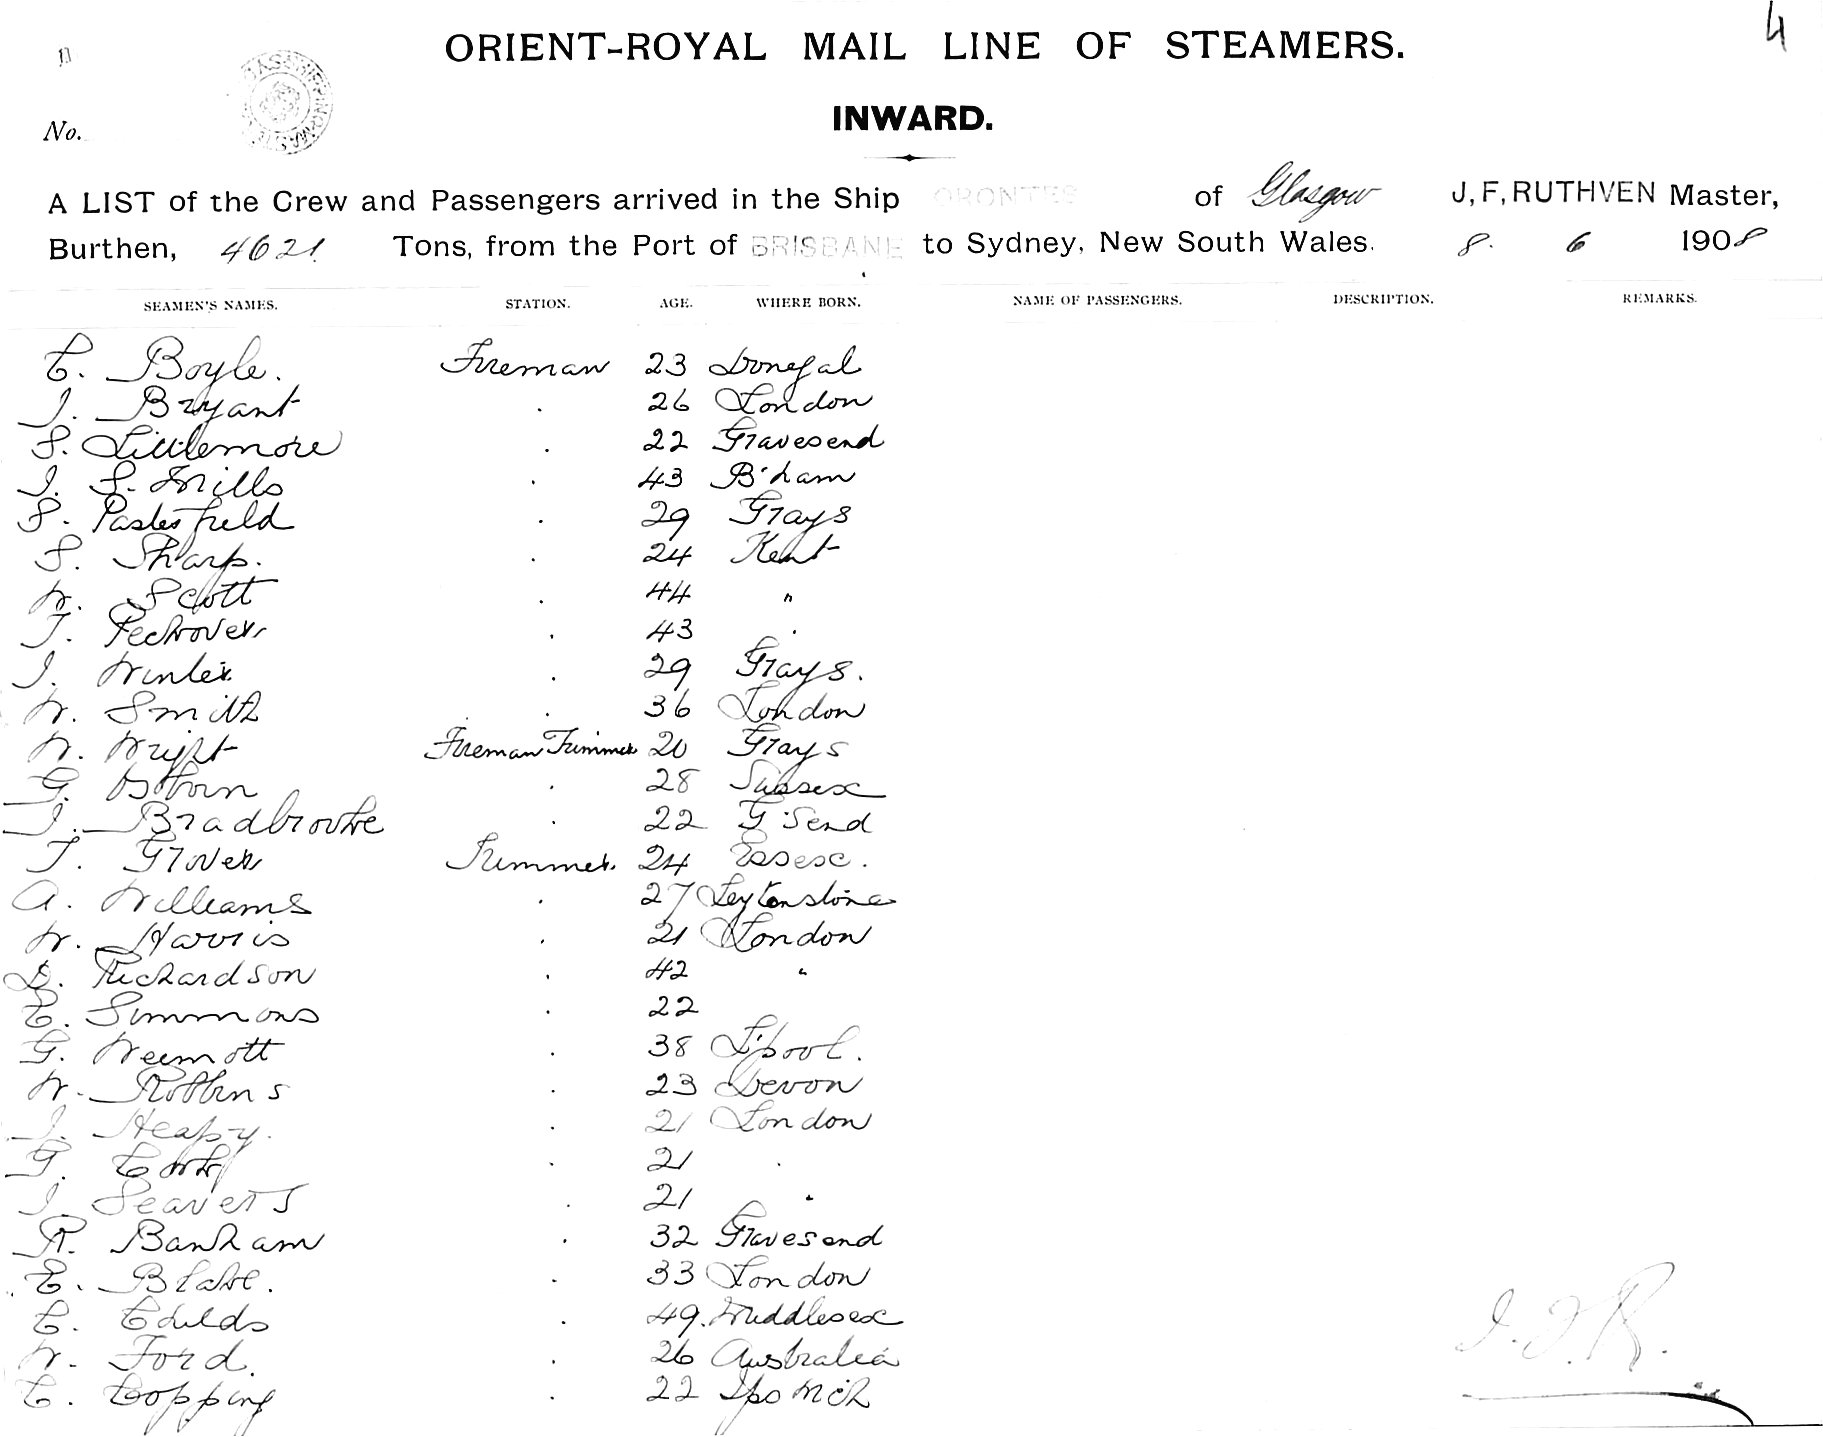 4
ORIENT-ROYAL MAIL LINE OF STEAMERS.
INWARD.
No.
A LIST of the Crew and Passengers arrived in the Ship ORONTES of Glasgow J, F, RUTHVEN Master,
Burthen, 4621 Tons, from the Port of BRISBANE to Sydney, New South Wales. 8. 6 1908
SEAMEN'S NAMES. STATION. AGE. WHERE BORN. NAME OF PASSENGERS. DESCRIPTION. REMARKS.
C. Boyle. Fireman 23 Donegal
J. Bryant . 26 London
S. Littlemore . 22 Gravesend
J. S. Mills . 43 B'ham
S. . 29 Grays
S. Sharp. . 24 Kent
W. Scott . 44 "
T. Pechover . 43 .
J. Winter . 29 Grays.
W. Smith . 36 London
W. Wright Fireman Trimmer 20 Grays
G. Osborn . 28 Sussex
J. Bradbrooke . 22 G'Send
T. Glover Trimmer. 24 Essex.
A. Williams . 27 Leytonstone
W. Harris . 21 London
D. Richardson . 42 "
C. Simmons . 22
G. . 38 L'pool.
W. Robbins . 23 Devon
J. Heapy. . 21 London
G. . 21 .
J. Seavers . 21 "
R. Banham . 32 Gravesend
E. Blake. . 33 London
C. Childs . 49. Middlesex
W. Ford. . 26 Australia
C. Copping . 22 Ipswich
J. F. R.